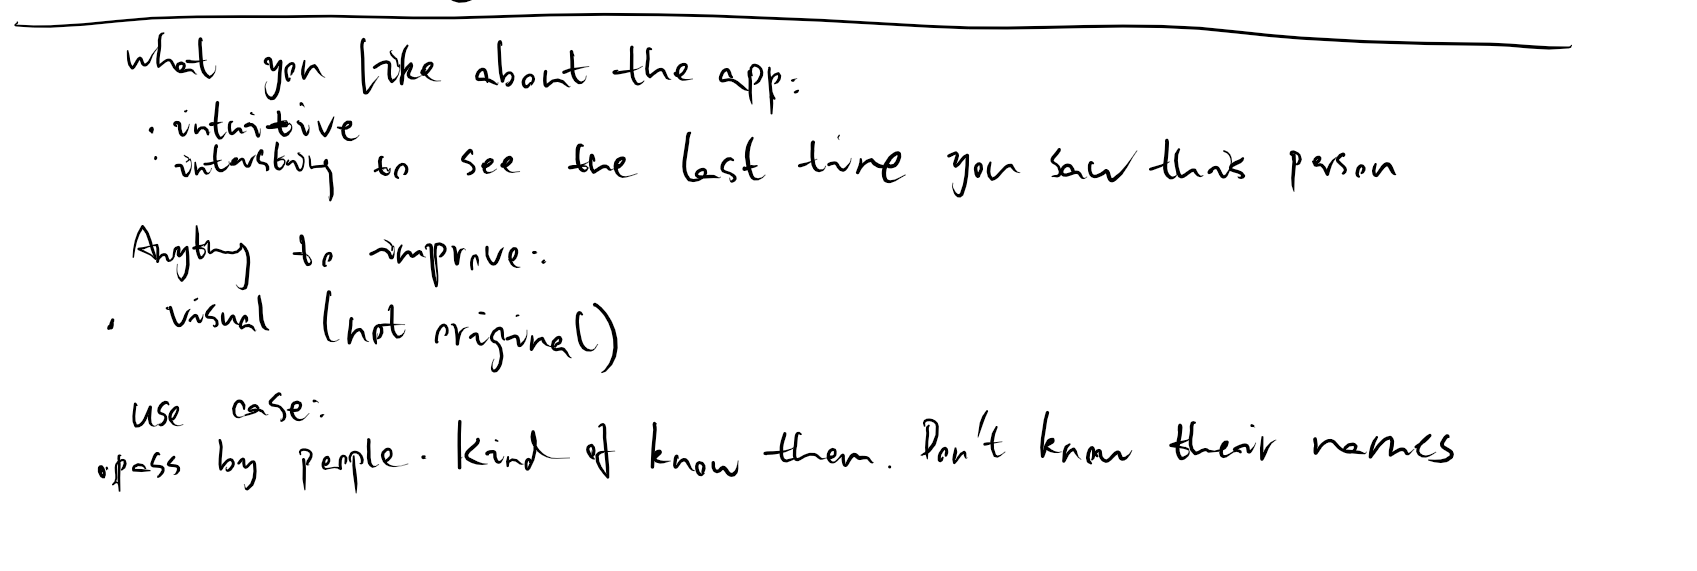 what you like about the app:
· intuitive
· intersting to see the last time you saw this person
Anything to improve:
· visual (not original)
use case:
· pass by people. Kind of know them. Don't know their names